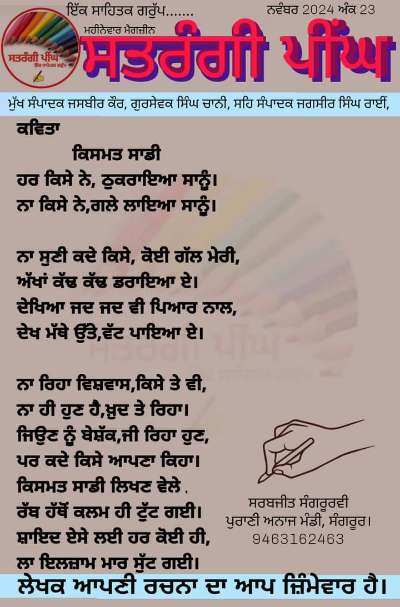 ਇੱਕ ਸਾਹਿਤਕ ਗਰੁੱਪ.......
ਨਵੰਬਰ 2024 ਅੰਕ 23
ਮਹੀਨੇਵਾਰ ਮੈਗਜ਼ੀਨ
ਸਤਰੰਗੀ ਪੀਂਘ
ਸਤਰੰਗੀ ਪੀਂਘ
ਮੁੱਖ ਸੰਪਾਦਕ ਜਸਬੀਰ ਕੌਰ, ਗੁਰਸੇਵਕ ਸਿੰਘ ਚਾਨੀ, ਸਹਿ ਸੰਪਾਦਕ ਜਗਸੀਰ ਸਿੰਘ ਰਾਈਂ,
ਕਵਿਤਾ
ਕਿਸਮਤ ਸਾਡੀ
ਹਰ ਕਿਸੇ ਨੇ, ਠੁਕਰਾਇਆ ਸਾਨੂੰ।
ਨਾ ਕਿਸੇ ਨੇ,ਗਲੇ ਲਾਇਆ ਸਾਨੂੰ।
ਨਾ ਸੁਣੀ ਕਦੇ ਕਿਸੇ, ਕੋਈ ਗੱਲ ਮੇਰੀ,
ਅੱਖਾਂ ਕੱਢ ਕੱਢ ਡਰਾਇਆ ਏ।
ਦੇਖਿਆ ਜਦ ਜਦ ਵੀ ਪਿਆਰ ਨਾਲ,
ਦੇਖ ਮੱਥੇ ਉੱਤੇ,ਵੱਟ ਪਾਇਆ ਏ।
ਨਾ ਰਿਹਾ ਵਿਸ਼ਵਾਸ,ਕਿਸੇ ਤੇ ਵੀ,
ਨਾ ਹੀ ਹੁਣ ਹੈ,ਖ਼ੁਦ ਤੇ ਰਿਹਾ।
ਜਿਉਣ ਨੂੰ ਬੇਸ਼ੱਕ,ਜੀ ਰਿਹਾ ਹੁਣ,
ਪਰ ਕਦੇ ਕਿਸੇ ਆਪਣਾ ਕਿਹਾ।
ਕਿਸਮਤ ਸਾਡੀ ਲਿਖਣ ਵੇਲੇ .
ਰੱਬ ਹੱਥੋਂ ਕਲਮ ਹੀ ਟੁੱਟ ਗਈ।
ਸ਼ਾਇਦ ਏਸੇ ਲਈ ਹਰ ਕੋਈ ਹੀ,
ਲਾ ਇਲਜ਼ਾਮ ਮਾਰ ਸੁੱਟ ਗਈ।
ਸਰਬਜੀਤ ਸੰਗਰੂਰਵੀ
ਪੁਰਾਣੀ ਅਨਾਜ ਮੰਡੀ, ਸੰਗਰੂਰ।
9463162463
ਲੇਖਕ ਆਪਣੀ ਰਚਨਾ ਦਾ ਆਪ ਜ਼ਿੰਮੇਵਾਰ ਹੈ।